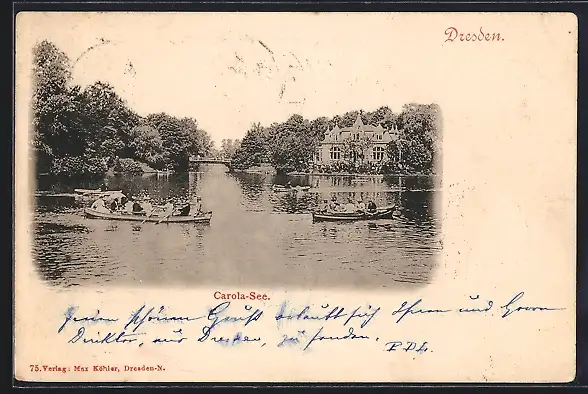 Dresden.
Carola-See.
schönen Gruß erlaubt sich Ihnen und Herrn
Direktor, aus Dresden, zu senden.
75. Verlag: Max Köhler, Dresden-N.